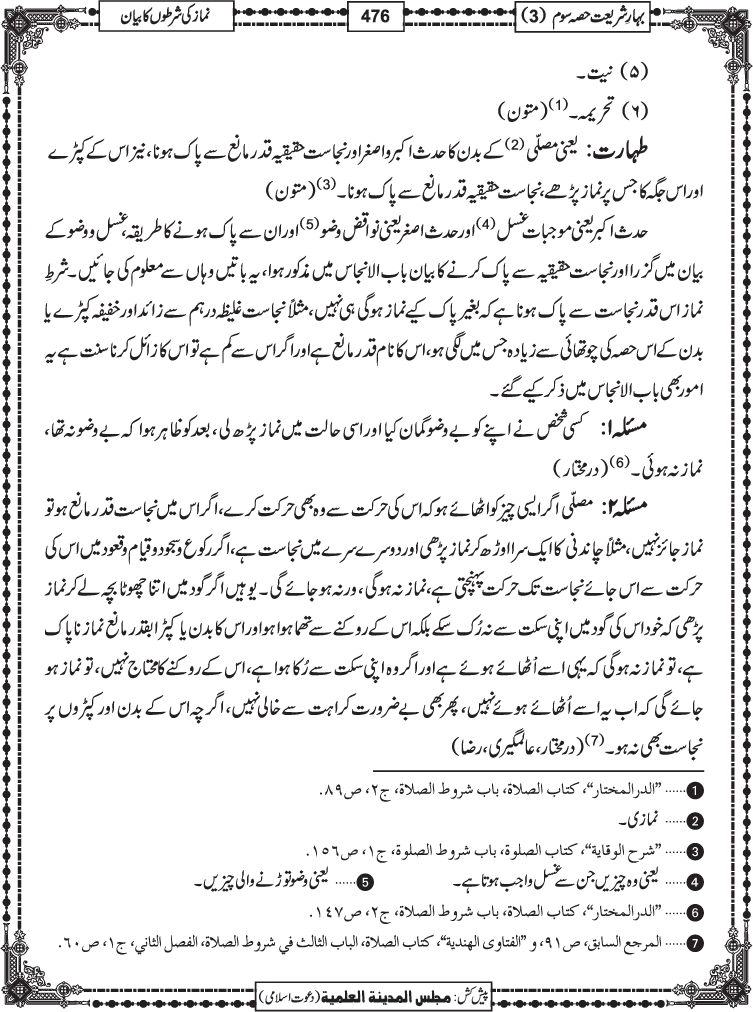 بہار شریعت حصہ سوم (3)
476
نماز کی شرطوں کا بیان
(۵) نیت۔
(۶) تحریمہ۔(1) (متون)
طہارت: یعنی مصلّی (2) کے بدن کا حدث اکبر و اصغر اور نجاست حقیقیہ قدر مانع سے پاک ہونا، نیز اس کے کپڑے
اور اس جگہ کا جس پر نماز پڑھے، نجاست حقیقیہ قدر مانع سے پاک ہونا۔(3) (متون)
حدث اکبر یعنی موجبات غسل (4) اور حدث اصغر یعنی نواقض وضو (5) اور ان سے پاک ہونے کا طریقہ، غسل و وضو کے
بیان میں گزرا اور نجاست حقیقیہ سے پاک کرنے کا بیان باب الانجاس میں مذکور ہوا، یہ باتیں وہاں سے معلوم کی جائیں۔ شرطِ
نماز اس قدر نجاست سے پاک ہونا ہے کہ بغیر پاک کیے نماز ہوگی ہی نہیں، مثلاً نجاست غلیظہ درہم سے زائد اور خفیفہ کپڑے یا
بدن کے اس حصہ کی چوتھائی سے زیادہ جس میں لگی ہو، اس کا نام قدر مانع ہے اور اگر اس سے کم ہے تو اس کا زائل کرنا سنت ہے یہ
امور بھی باب الانجاس میں ذکر کیے گئے۔
مسئلہ ۱: کسی شخص نے اپنے کو بے وضو گمان کیا اور اسی حالت میں نماز پڑھ لی، بعد کو ظاہر ہوا کہ بے وضو نہ تھا،
نماز نہ ہوئی۔(6) (درمختار)
مسئلہ ۲: مصلّی اگر ایسی چیز کو اٹھائے ہو کہ اس کی حرکت سے وہ بھی حرکت کرے، اگر اس میں نجاست قدر مانع ہو تو
نماز جائز نہیں، مثلاً چاندنی کا ایک سرا اوڑھ کر نماز پڑھی اور دوسرے سرے میں نجاست ہے، اگر رکوع و سجود و قیام و قعود میں اس کی
حرکت سے اس جائے نجاست تک حرکت پہنچتی ہے، نماز نہ ہوگی، ورنہ ہو جائے گی۔ یوہیں اگر گود میں اتنا چھوٹا بچہ لے کر نماز
پڑھی کہ خود اس کی گود میں اپنی سکت سے نہ رُک سکے بلکہ اس کے روکنے سے تھما ہوا ہو اور اس کا بدن یا کپڑا بقدر مانع نماز ناپاک
ہے، تو نماز نہ ہوگی کہ یہی اسے اُٹھائے ہوئے ہے اور اگر وہ اپنی سکت سے رُکا ہوا ہے، اس کے روکنے کا محتاج نہیں، تو نماز ہو
جائے گی کہ اب یہ اسے اُٹھائے ہوئے نہیں، پھر بھی بے ضرورت کراہت سے خالی نہیں، اگرچہ اس کے بدن اور کپڑوں پر
نجاست بھی نہ ہو۔(7) (درمختار، عالمگیری، رضا)
1 ...... "الدرالمختار"، كتاب الصلاة، باب شروط الصلاة، ج٢، ص٨٩.
2 ...... نمازی۔
3 ...... "شرح الوقاية"، كتاب الصلوة، باب شروط الصلوة، ج١، ص١٥٦.
4 ...... یعنی وہ چیزیں جن سے غسل واجب ہوتا ہے۔ 5 ...... یعنی وضو توڑنے والی چیزیں۔
6 ...... "الدرالمختار"، كتاب الصلاة، باب شروط الصلاة، ج٢، ص١٤٧.
7 ...... المرجع السابق، ص٩١، و "الفتاوى الهندية"، كتاب الصلاة، الباب الثالث في شروط الصلاة، الفصل الثاني، ج١، ص٦٠.
پیش کش: مجلس المدينة العلمية (دعوت اسلامی)